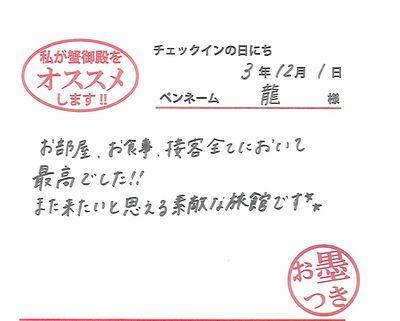 私が蟹御殿を
オススメ
します!!
チェックインの日にち
3年12月1日
ペンネーム 龍 様
お部屋、お食事、接客全てにおいて
最高でした!!
また来たいと思える素敵な旅館です**
お墨
つき